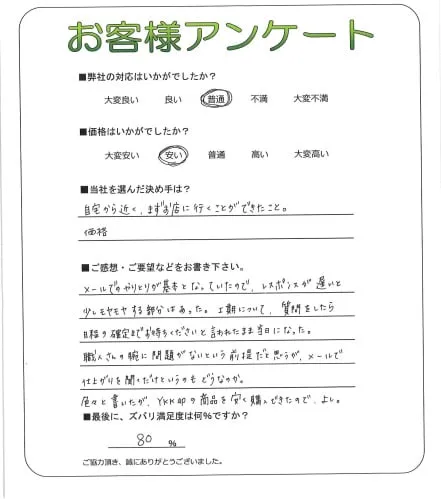 お客様アンケート
■弊社の対応はいかがでしたか？
大変良い 良い 普通 不満 大変不満
■価格はいかがでしたか？
大変安い 安い 普通 高い 大変高い
■当社を選んだ決め手は？
自宅から近く、まずお店に行くことができたこと。
価格
■ご感想・ご要望などをお書き下さい。
メールでのやりとりが基本となっていたので、レスポンスが遅いと
少しモヤモヤする部分はあった。工期について、質問をしたら
日程の確定までお待ちくださいと言われたまま当日になった。
職人さんの腕に問題がないという前提だと思うが、メールで
仕上がりを聞くだけというのもどうなのか。
色々と書いたが、YKKapの商品を安く購入できたので、よし。
■最後に、ズバリ満足度は何%ですか？
80 %
ご協力頂き、誠にありがとうございました。